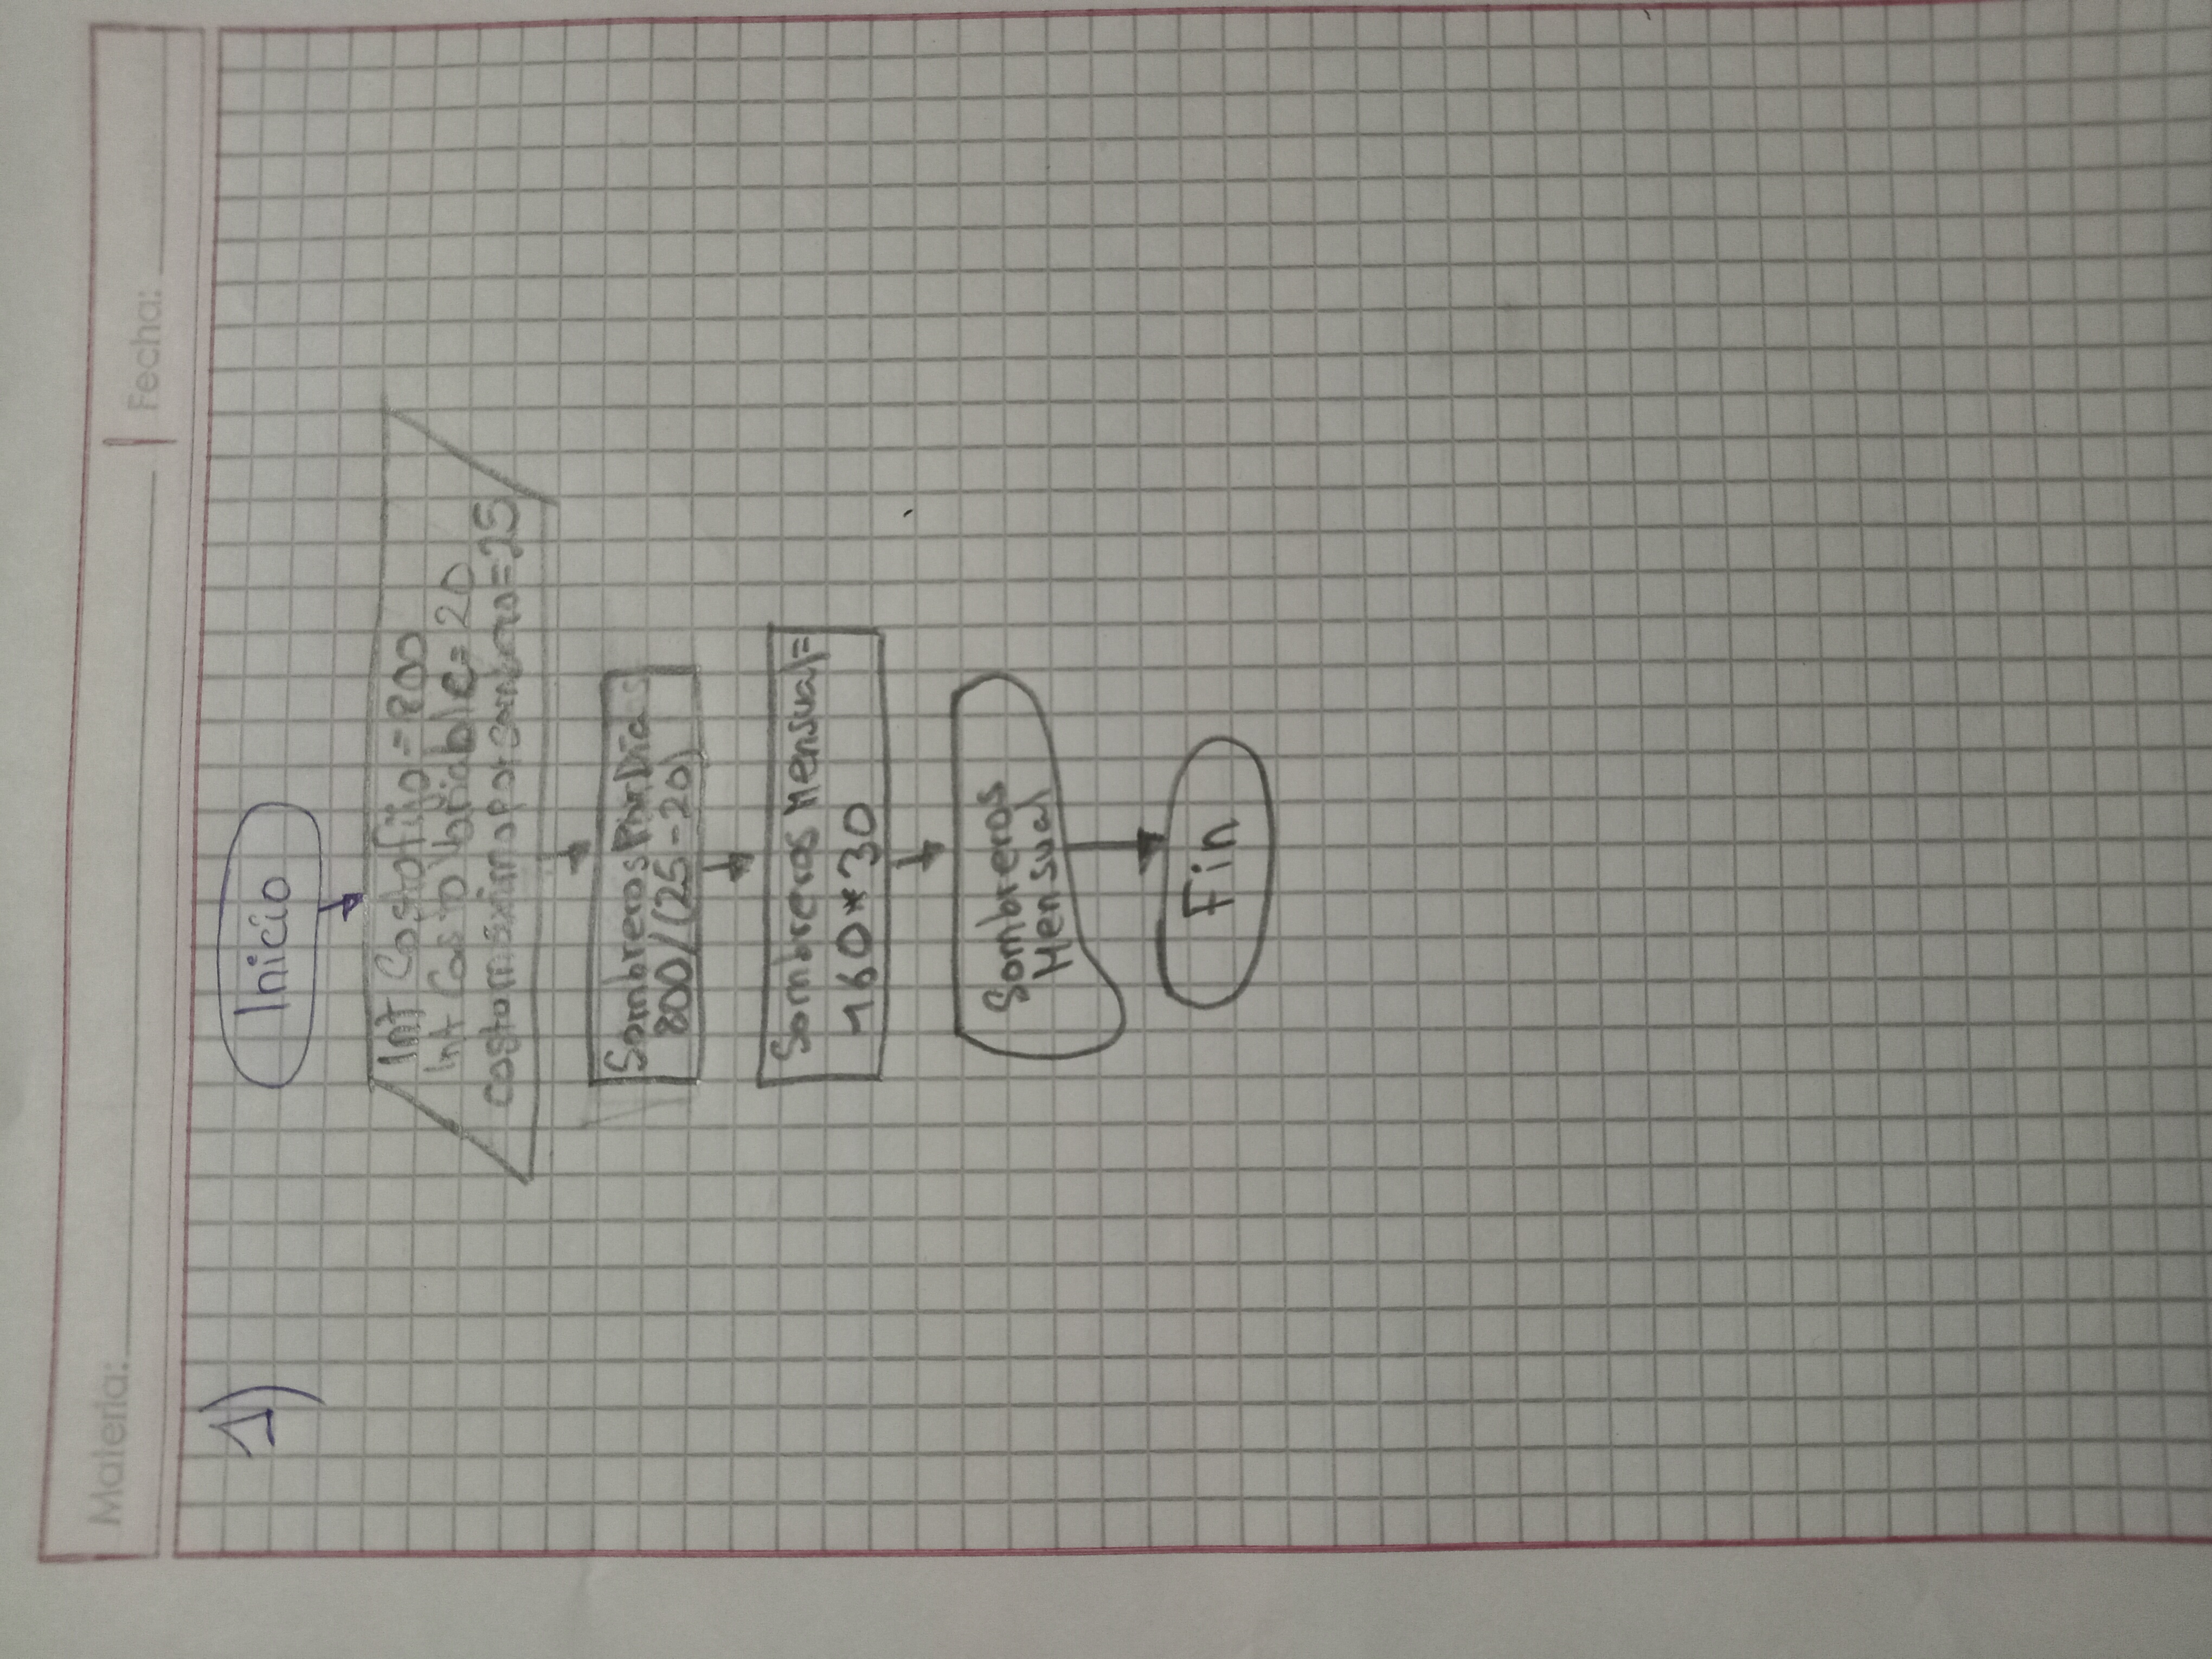 Materia:
Fecha:
1)
Inicio
Int Costofijo = 800
Int Costo Variable = 20
costomáximoporsombrero = 25
SombrerosPorDía
800/(25-20)
Sombreros Mensual=
160*30
Sombreros
Mensual
Fin